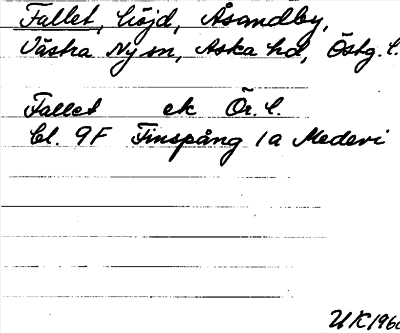 Fallet, höjd, Åsandby,
Västra Ny sn, Aska hd, Östg. l.
Fallet ek Ör. l.
bl. 9F Finspång 1a Medevi
UK 1960